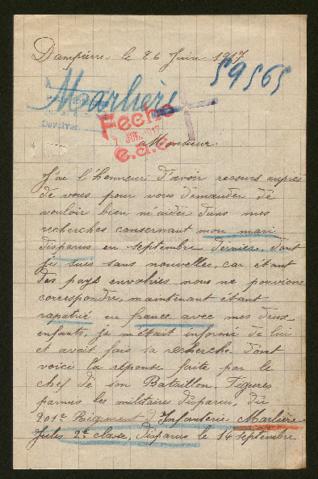 Dampierre, le 26 Juin 1917
59565
Marlière
Feche
e.d.s.
Monsieur.
J'ai l'honneur d'avoir recours auprès
de vous pour vous demander de
vouloir bien m'aider dans mes
recherches consernant mon mari
disparus en septembre dernier, dont
je suis sans nouvelles, car étant
des pays envahies nous ne pouvions
correspondre, maintenant étant
rapatrié en france avec mes deux
enfants, je m'était informé de lui
et avait fais sa recherche. Dont
voici la réponse faite par le
chef de son Bataillon. Figures
parmis les militaires disparus, du
201e Régiment d'Infanterie Marlière
Jules 2e classe, disparus le 14 septembre